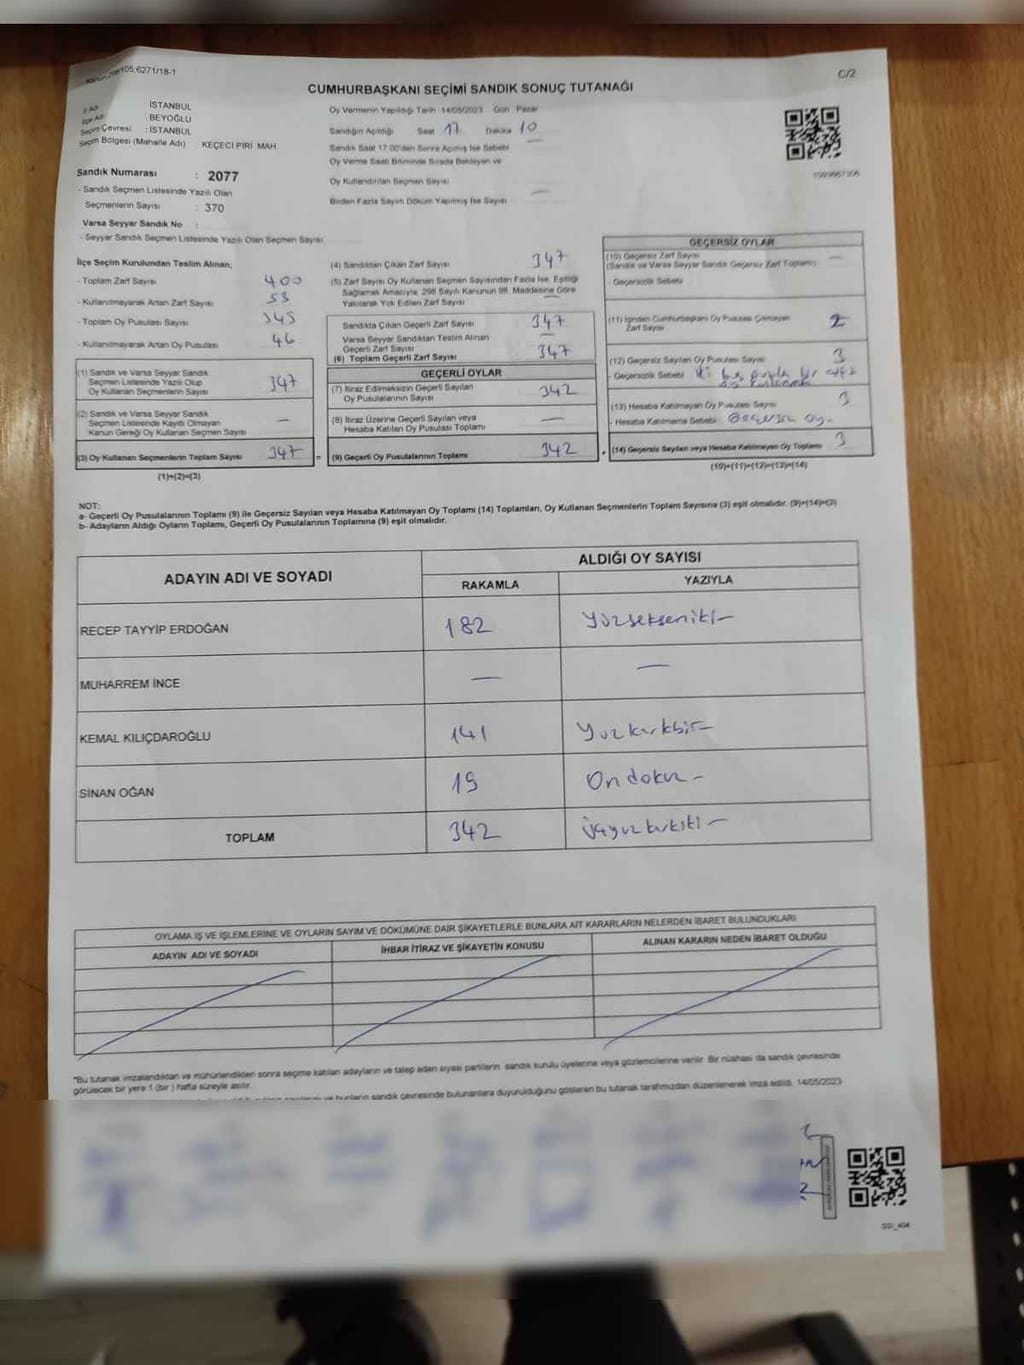 C/2
CUMHURBAŞKANI SEÇİMİ SANDIK SONUÇ TUTANAĞI
İl Adı : İSTANBUL
İlçe Adı : BEYOĞLU
Seçim Çevresi : İSTANBUL
Seçim Bölgesi (Mahalle Adı) KEÇECİ PİRİ MAH.
Sandık Numarası : 2077
- Sandık Seçmen Listesinde Yazılı Olan
Seçmenlerin Sayısı : 370
Varsa Seyyar Sandık No :
- Seyyar Sandık Seçmen Listesinde Yazılı Olan Seçmen Sayısı
Oy Vermenin Yapıldığı Tarih 14/05/2023 Gün Pazar
Sandığın Açıldığı Saat 17 Dakika 10
Sandık Saat 17:00'den Sonra Açılmış İse Sebebi
Oy Verme Saati Bitiminde Sırada Bekleyen ve
Oy Kullandırılan Seçmen Sayısı
Birden Fazla Sayım Döküm Yapılmış İse Sayısı
İlçe Seçim Kurulundan Teslim Alınan;
- Toplam Zarf Sayısı 400
- Kullanılmayarak Artan Zarf Sayısı 53
- Toplam Oy Pusulası Sayısı
- Kullanılmayarak Artan Oy Pusulası 46
(1) Sandık ve Varsa Seyyar Sandık
Seçmen Listesinde Yazılı Olup
Oy Kullanan Seçmenlerin Sayısı 347
(2) Sandık ve Varsa Seyyar Sandık
Seçmen Listesinde Kaydı Olmayan
Kanun Gereği Oy Kullanan Seçmen Sayısı —
(3) Oy Kullanan Seçmenlerin Toplam Sayısı 347 =
(1)+(2)=(3)
(4) Sandıktan Çıkan Zarf Sayısı 347
(5) Zarf Sayısı Oy Kullanan Seçmen Sayısından Fazla İse, Eşitliği
Sağlamak Amacıyla, 298 Sayılı Kanunun 98. Maddesine Göre
Yakılarak Yok Edilen Zarf Sayısı —
Sandıkta Çıkan Geçerli Zarf Sayısı 347
Varsa Seyyar Sandıktan Teslim Alınan
Geçerli Zarf Sayısı —
(6) Toplam Geçerli Zarf Sayısı 347
GEÇERLİ OYLAR
(7) İtiraz Edilmeksizin Geçerli Sayılan
Oy Pusulasının Sayısı 342
(8) İtiraz Üzerine Geçerli Sayılan veya
Hesaba Katılan Oy Pusulası Toplamı —
(9) Geçerli Oy Pusulalarının Toplamı 342 +
GEÇERSİZ OYLAR
(10) Geçersiz Zarf Sayısı
(Sandık ve Varsa Seyyar Sandık Geçersiz Zarf Toplamı) —
- Geçersizlik Sebebi
(11) İçinden Cumhurbaşkanı Oy Pusulası Çıkmayan
Zarf Sayısı 2
(12) Geçersiz Sayılan Oy Pusulası Sayısı 3
- Geçersizlik Sebebi
(13) Hesaba Katılmayan Oy Pusulası Sayısı 3
- Hesaba Katılmama Sebebi Geçersiz oy.
(14) Geçersiz Sayılan veya Hesaba Katılmayan Oy Toplamı 3
(10)+(11)+(12)+(13)=(14)
NOT:
a- Geçerli Oy Pusulalarının Toplamı (9) ile Geçersiz Sayılan veya Hesaba Katılmayan Oy Toplamı (14) Toplamları, Oy Kullanan Seçmenlerin Toplam Sayısına (3) eşit olmalıdır. (9)+(14)=(3)
b- Adayların Aldığı Oyların Toplamı, Geçerli Oy Pusulalarının Toplamına (9) eşit olmalıdır.
ADAYIN ADI VE SOYADI
ALDIĞI OY SAYISI
RAKAMLA YAZIYLA
RECEP TAYYİP ERDOĞAN 182 Yüzsekseniki—
MUHARREM İNCE — —
KEMAL KILIÇDAROĞLU 141 Yüzkırkbir—
SİNAN OĞAN 19 Ondokuz -
TOPLAM 342 Üçyüzkırkiki—
OYLAMA İŞ VE İŞLEMLERİNE VE OYLARIN SAYIM VE DÖKÜMÜNE DAİR ŞİKAYETLERLE BUNLARA AİT KARARLARIN NELERDEN İBARET BULUNDUKLARI
ADAYIN ADI VE SOYADI İHBAR İTİRAZ VE ŞİKAYETİN KONUSU ALINAN KARARIN NEDEN İBARET OLDUĞU
"Bu tutanak imzalandıktan ve mühürlendikten sonra seçime katılan adayların ve talep eden siyasi partilerin sandık kurulu üyelerine veya gözlemcilerine verilir. Bir nüshası da sandık çevresinde
görülecek bir yere 1 (bir) hafta süreyle asılır.
sandık çevresinde bulunanlara duyurulduğunu gösteren bu tutanak tarafımızdan düzenlenerek imza edildi. 14/05/2023